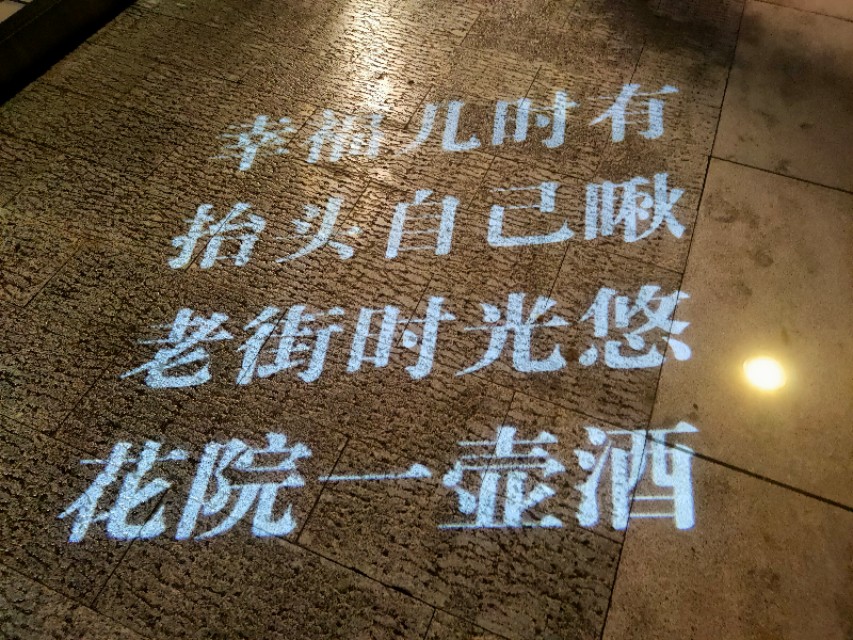 幸福儿时有
抬头自己瞅
老街时光悠
花院一壶酒